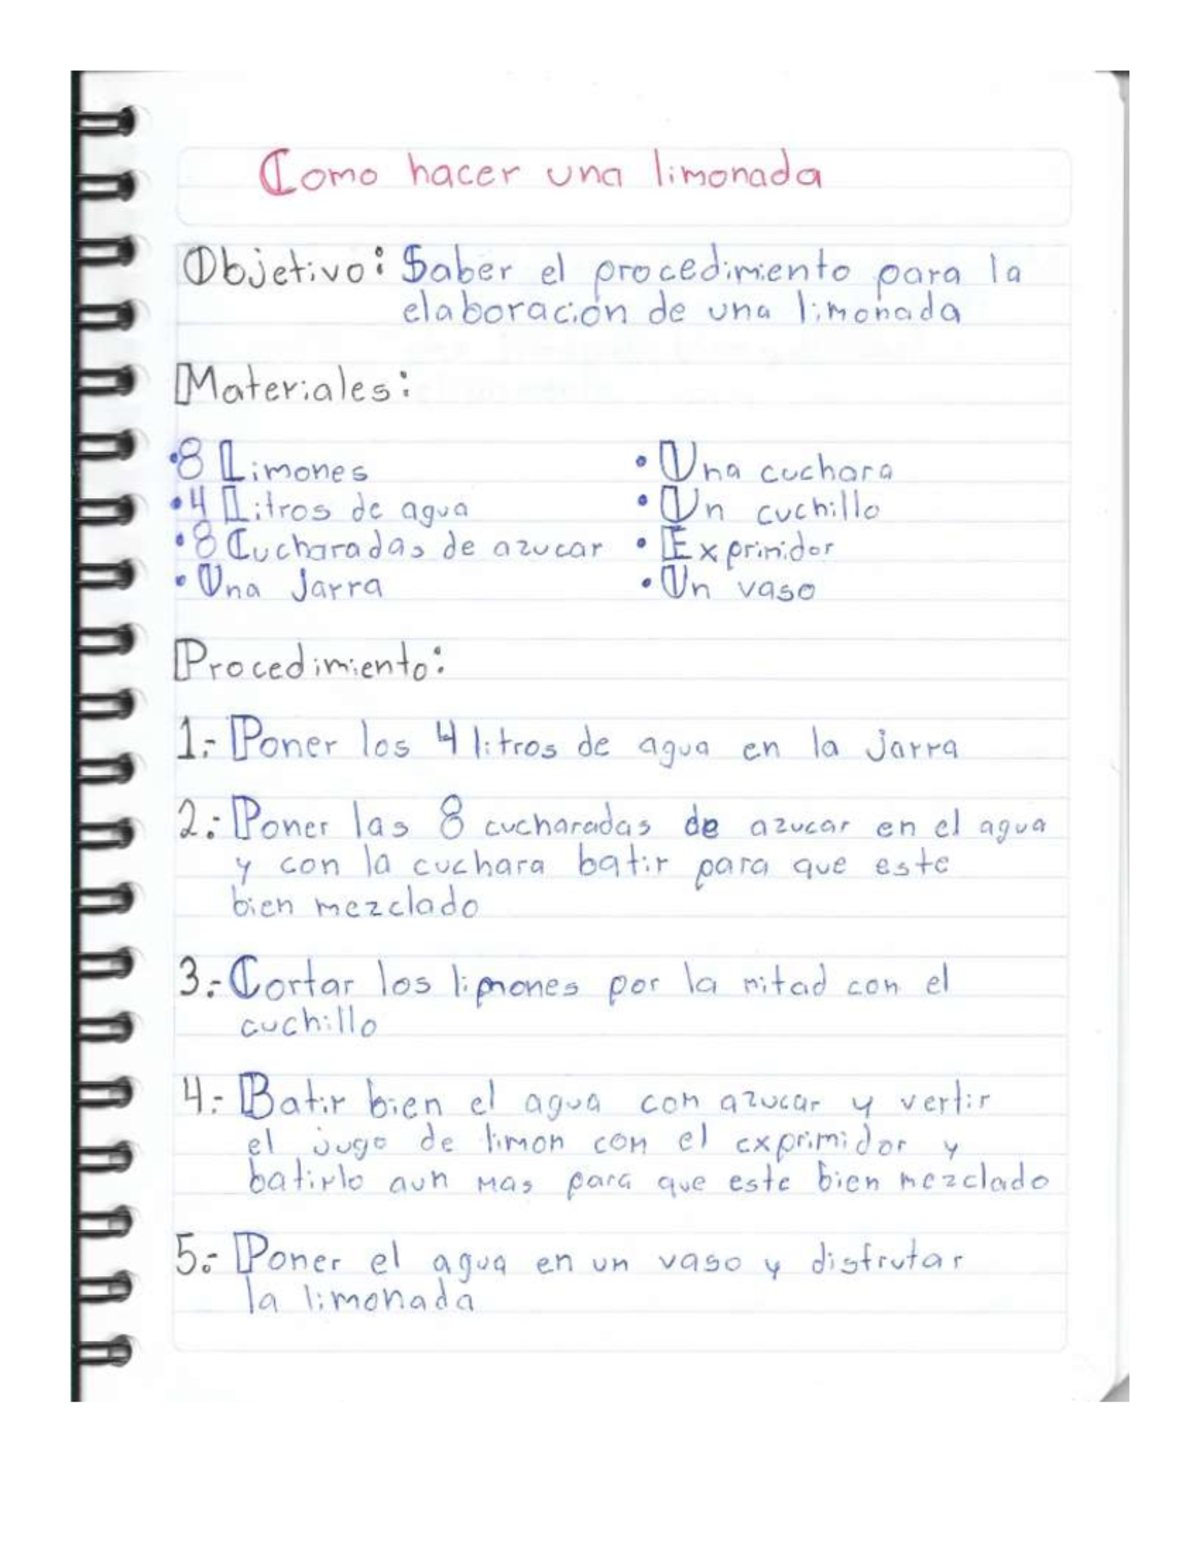 Como hacer una limonada
Objetivo: Saber el procedimiento para la
elaboración de una limonada
Materiales:
•8 Limones
•4 Litros de agua
•8 Cucharadas de azucar
•Una Jarra
•Una cuchara
•Un cuchillo
•Exprimidor
•Un vaso
Procedimiento:
1.- Poner los 4 litros de agua en la jarra
2.- Poner las 8 cucharadas de azucar en el agua
y con la cuchara batir para que este
bien mezclado
3.- Cortar los limones por la mitad con el
cuchillo
4.- Batir bien el agua con azucar y vertir
el jugo de limon con el exprimidor y
batirlo aun mas para que este bien mezclado
5.- Poner el agua en un vaso y disfrutar
la limonada